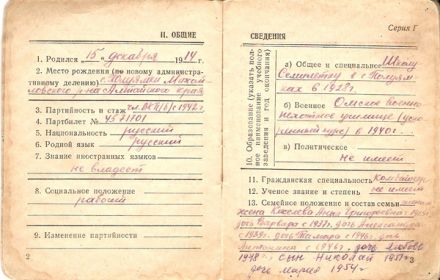 II. ОБЩИЕ
1. Родился 15 декабря 1914 г.
2. Место рождения (по новому административному
делению) с. Полуямки
района Алтайского края
3. Партийность и стаж чл. ВКП(б) с 1942 г.
4. Партбилет № 4521701
5. Национальность русский
6. Родной язык русский
7. Знание иностранных языков
не владеет
8. Социальное положение
рабочий
9. Изменение партийности
2
Серия Г
СВЕДЕНИЯ
10. Образование (указать полное
наименование учебного
заведения и год окончания)
а) Общее и специальное Школу
семилетку в с. Полуямках
в 1928 г.
б) Военное Омское военно-
пехотное училище
в 1940 г.
в) Политическое
не имеет
11. Гражданская специальность
12. Ученое звание и степень не имеет
13. Семейное положение и состав семьи
жена Киселева Анна Григорьевна
дочь Варвара с 1937 г. дочь
с 1939 г. дочь Тамара с 1946 г. дочь
с 1946 г. дочь Любовь
1948 г. сын Николай 1951 г.
дочь Мария 1954 г.
3